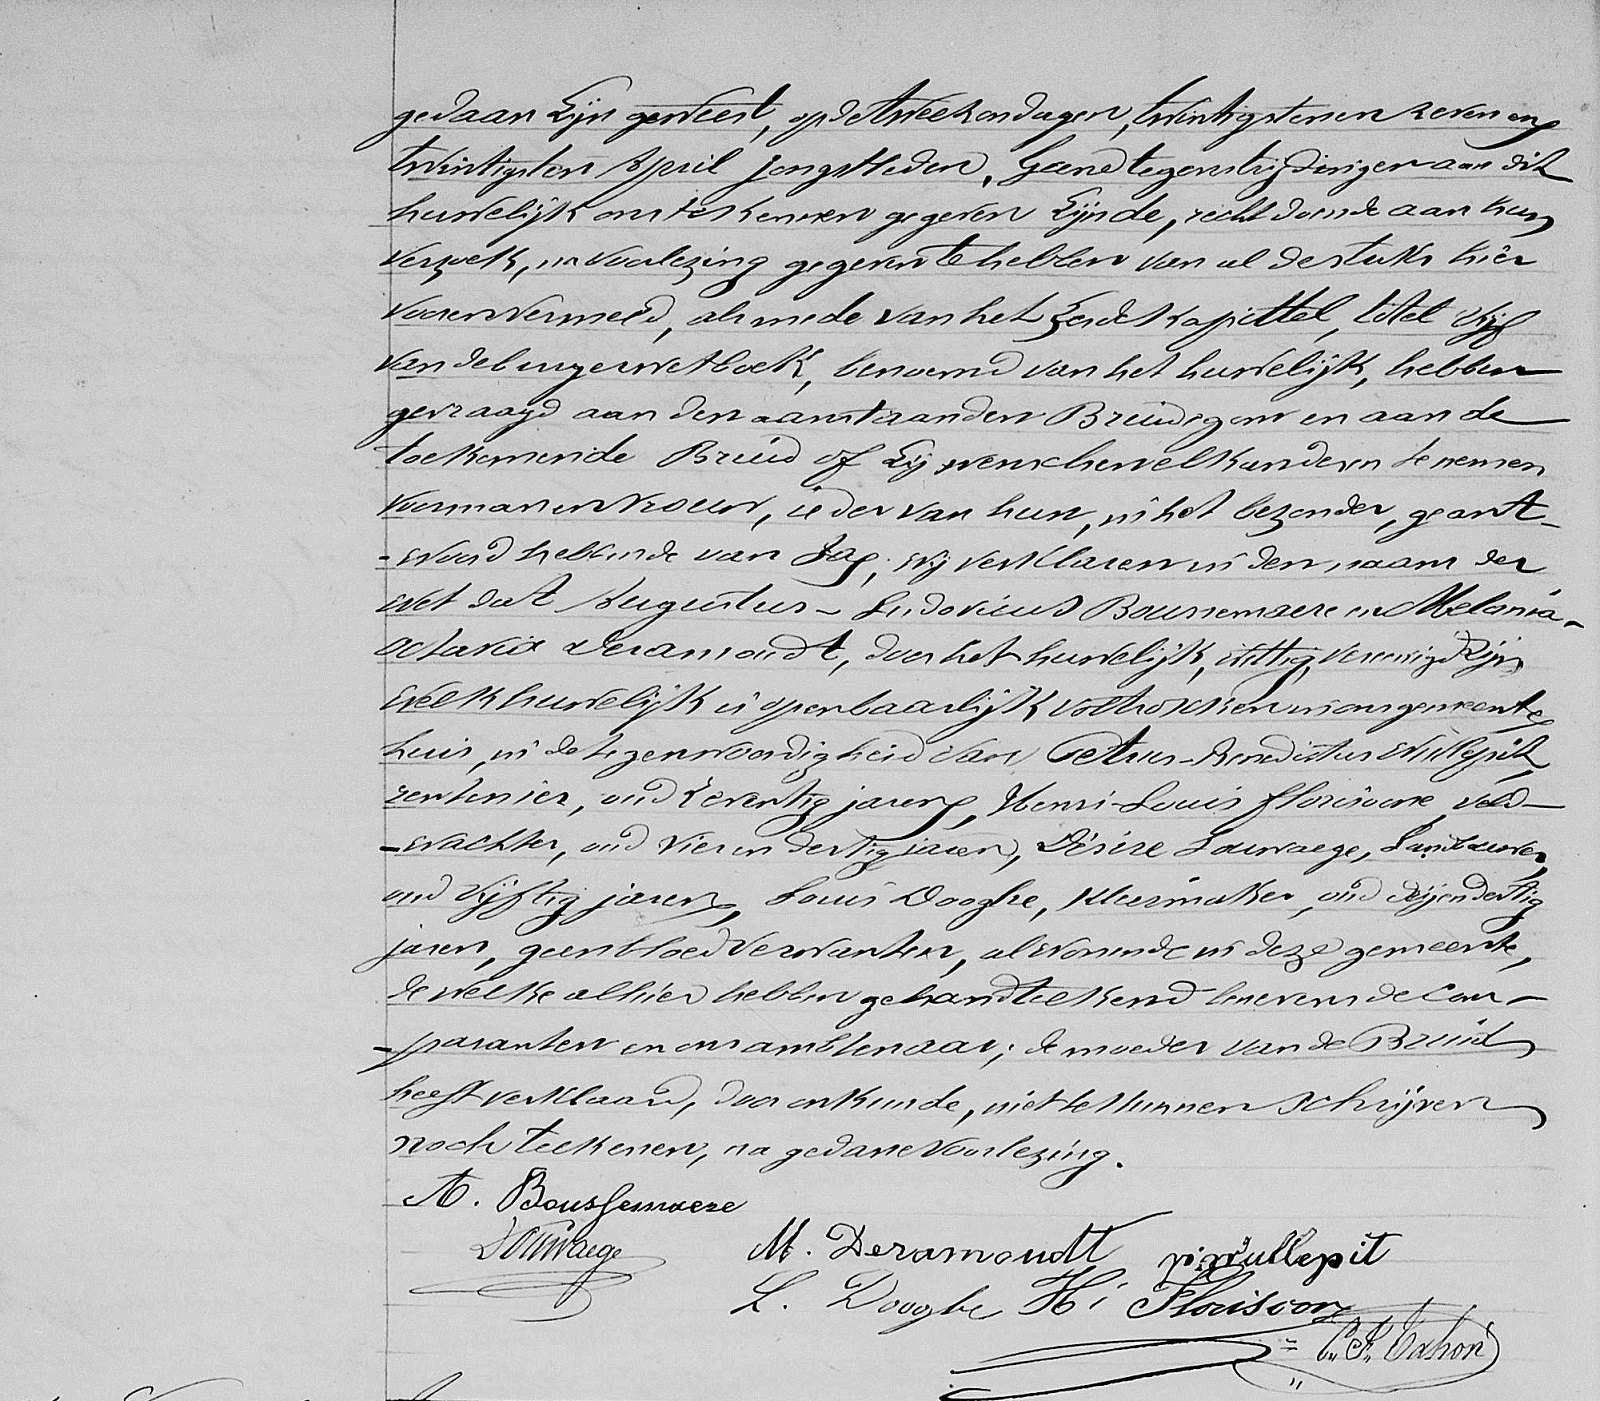 gedaan zijn geweest, op de twee zondagen, twintigsten en zeven en
twintigsten April jongstleden, geene tegenstrijdingen aan dit
huwelijk ons te kennen gegeven zijnde, recht doende aan hun
verzoek, na voorlezing gegeven te hebben van al de stuks hier
vooren vermeld, als mede van het zesde kapittel, titel vijf
van de burgerwetboek, benoemd van het huwelijk, hebben
gevraagd aan den aanstaanden Bruidegom en aan de
toekomende Bruid of zij wenschen elkanderen te nemen
voor man en vrouw, ieder van hun, in het bezonder, geant-
-woord hebbende van Ja, wij verklaren in den naam der
wet dat Augustus-Ludovicus Boussemaere en Melania-
Octavia Deramoudt, door het huwelijk, wettig vereenigd zijn
welk huwelijk is openbaarlijk voltrokken in ons gemeente
huis, in de tegenwoordigheid van Petrus-Benedictus Wullepit,
rentenier, oud zeventig jaren, Henri-Louis Florisoone, veld-
-wachter, oud vier en dertig jaren, Désiré Louwaege, Landbouwer,
oud vijftig jaren, Louis Dooghe, kleermaker, oud drij en dertig
jaren, geen bloedverwanten, al wonende in deze gemeente,
de welke alhier hebben gehandteekend benevens de com-
-paranten en ons ambtenaar; de moeder van de Bruid
heeft verklaard, door onkunde, niet te kunnen schrijven
noch teekenen, na gedane voorlezing.
A. Boussemaere
D Louwaege
M. Deramoudt
p: wullepit
L. Dooghe
Hi Florisoon
C. F. Tahon